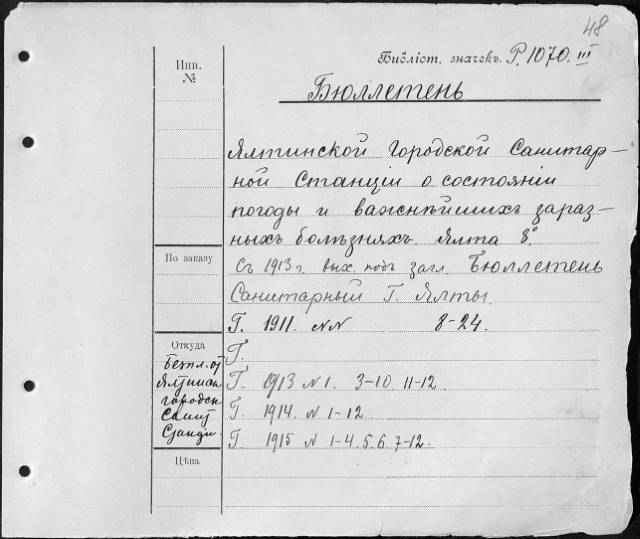 48
Инв.
№
Библіот. значекъ. Р. 1070. III
Бюллетень
Ялтинской Городской Санитар-
ной Станціи о состояніи
погоды и важнѣйшихъ зараз-
ныхъ болѣзняхъ. Ялта 8°.
По заказу
Съ 1913 г. вых. подъ загл. Бюллетень
Санитарный Г. Ялты.
Г. 1911. NN 8-24.
Откуда
Безпл. от
Ялтинск
городск
Санит
Станціи
Г.
Г. 1913 N 1. 3-10. 11-12
Г. 1914. N 1-12.
Г. 1915 N 1-4. 5. 6. 7-12.
Цѣна